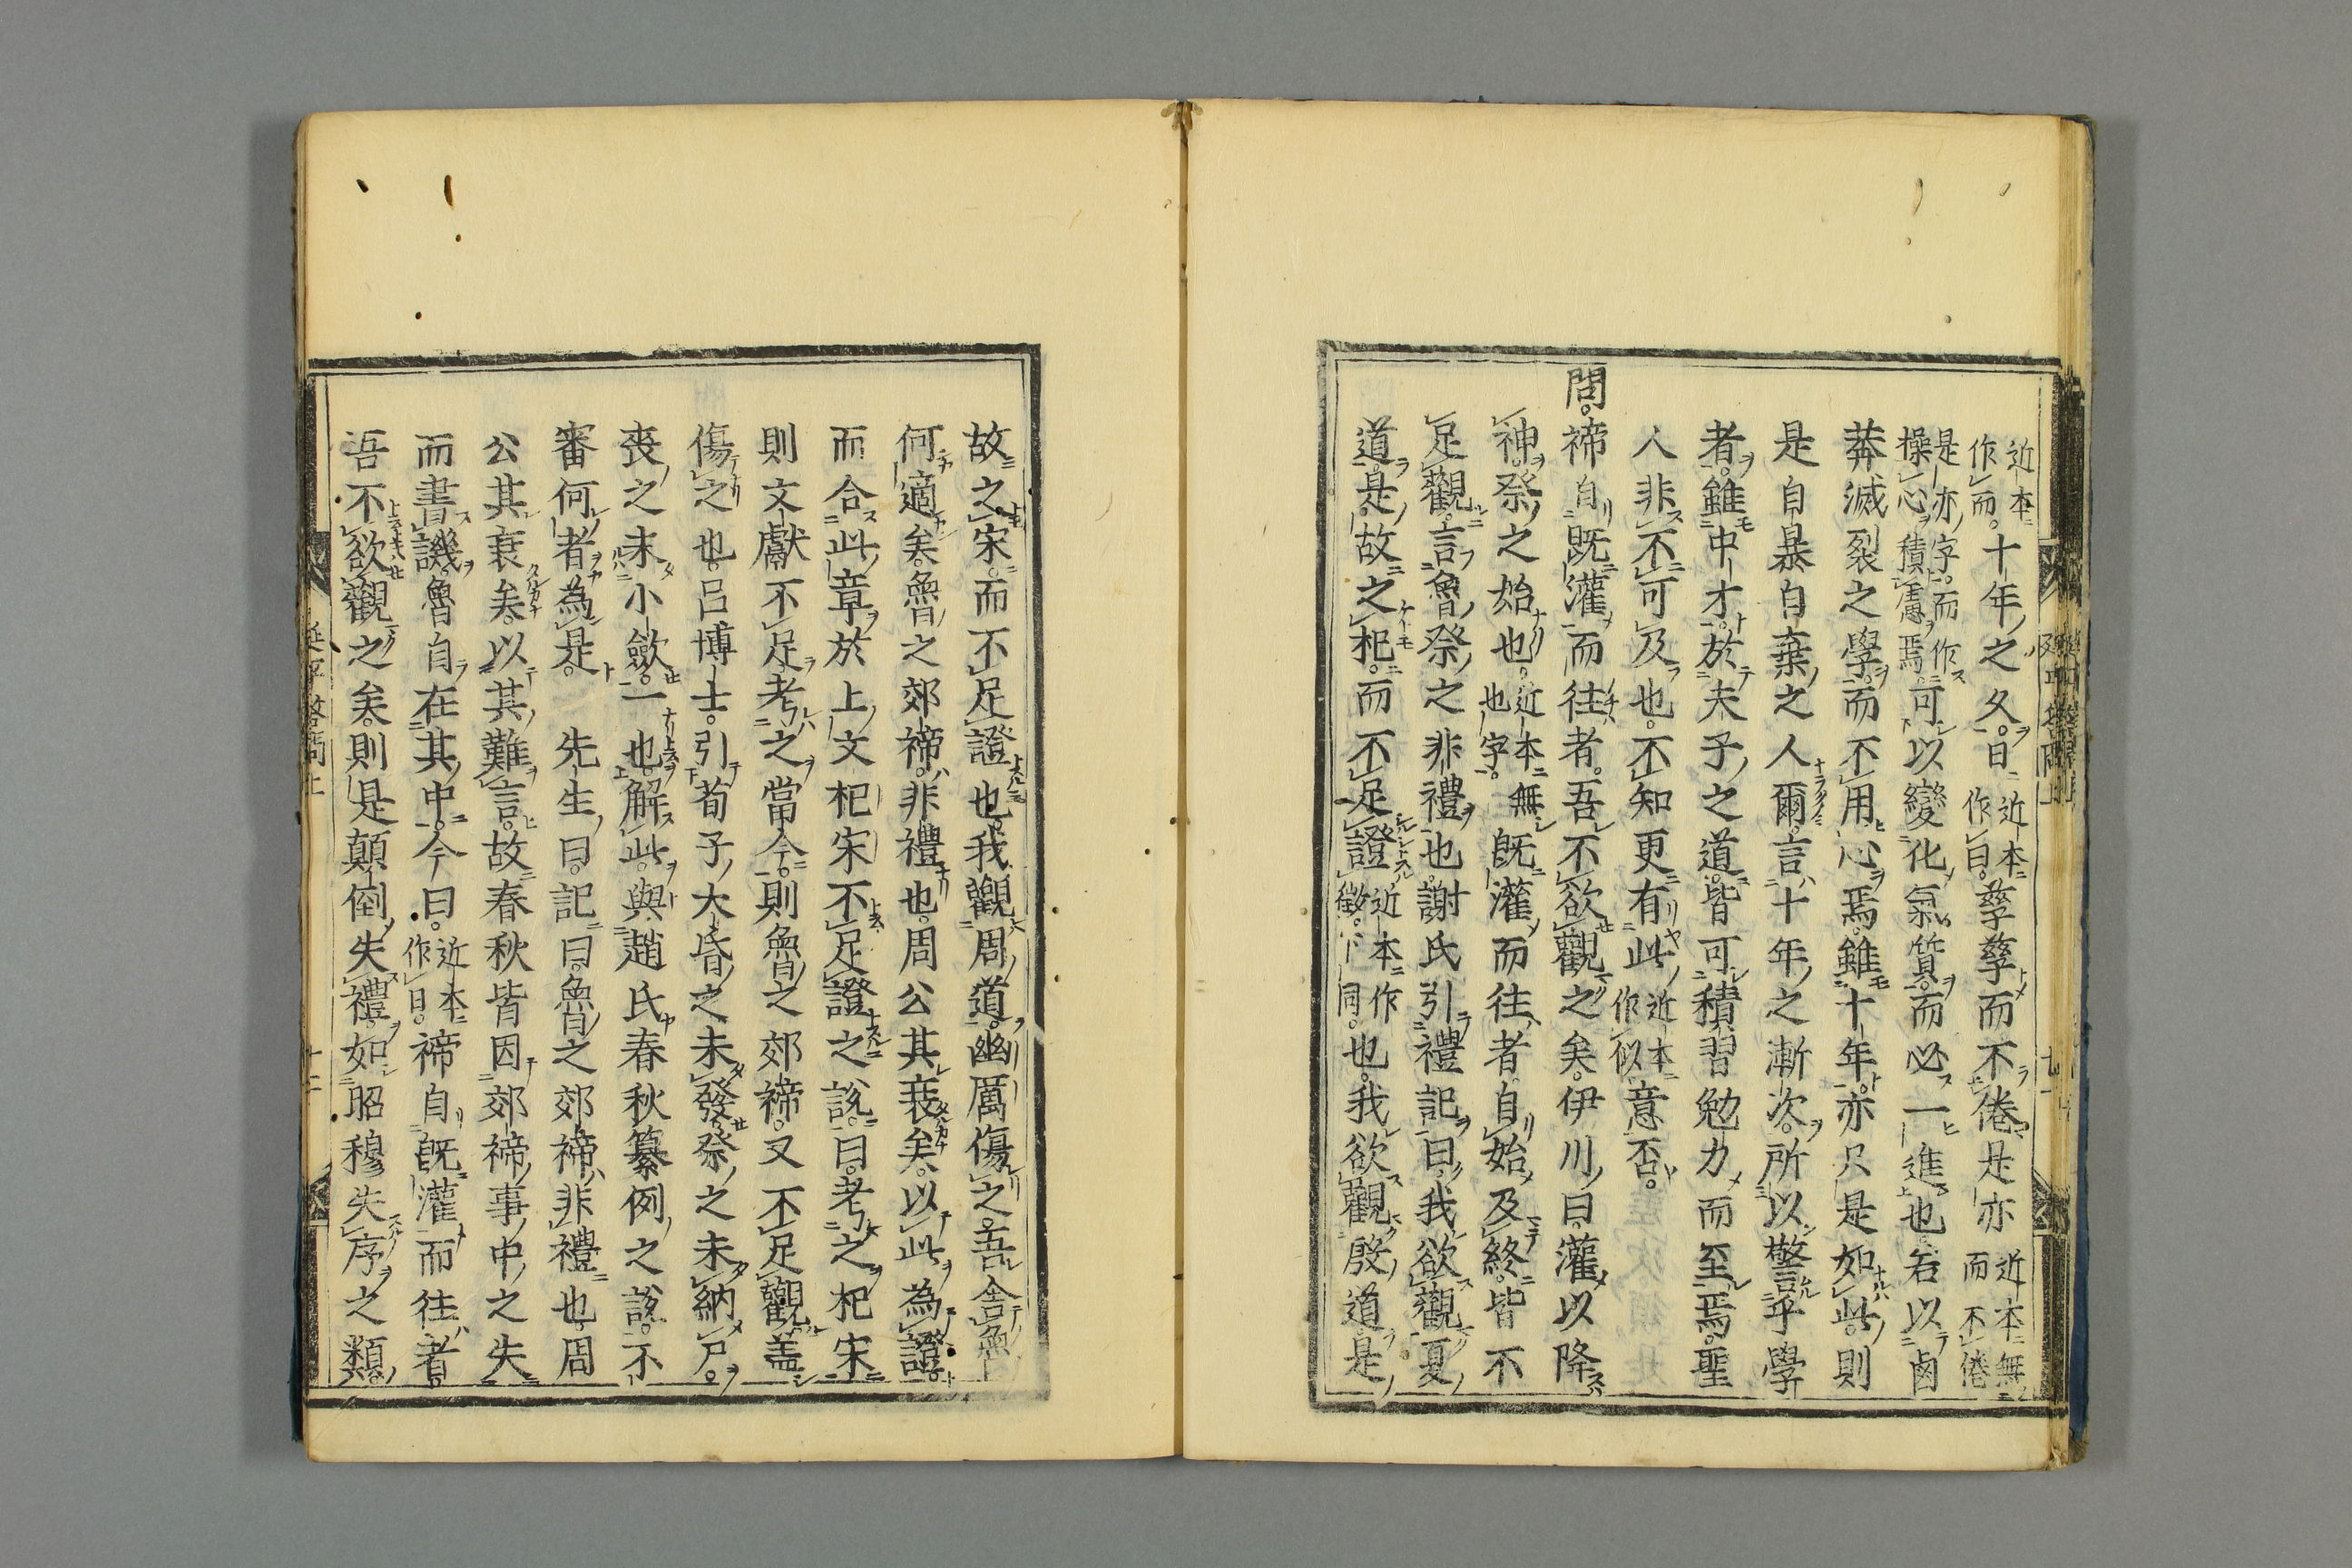 近本作而十年之久曰近本作曰孳孳而不倦是亦近本無而不倦
是亦字而作操心積慮焉可以變化氣質而必一進也若以鹵
莽滅裂之學而不用心焉雖十年亦只是如此則
是自暴自棄之人爾言十年之漸次所以警乎學
者雖中才於夫子之道皆可積習勉力而至焉聖
人非不可及也不知更有此近本作似意否
問禘自既灌而往者吾不欲觀之矣伊川曰灌以降
神祭之始也近本無也字既灌而往者自始及終皆不
足觀言魯祭之非禮也謝氏引禮記曰我欲觀夏
道是故之杞而不足證近本作徵下同也我欲觀殷道是
故之宋而不足證也我觀周道幽厲傷之吾舍魯
何適矣魯之郊禘非禮也周公其衰矣以此為證
而合此章於上文杞宋不足證之說曰考之杞宋
則文獻不足考之當今則魯之郊禘又不足觀盖
傷之也呂博士引荀子大昏之未發祭之未納尸
喪之未小斂一也解此與趙氏春秋纂例之說不
審何者為是 先生曰記曰魯之郊禘非禮也周
公其衰矣以其難言故春秋皆因郊禘事中之失
而書譏魯自在其中今曰近本作曰禘自既灌而往者
吾不欲觀之矣則是顛倒失禮如昭穆失序之類
延平答問上
十二